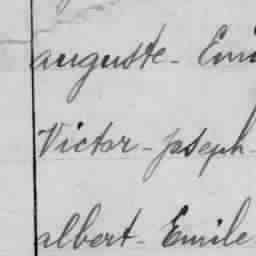 auguste - Emi
Victor - joseph -
albert - Emile